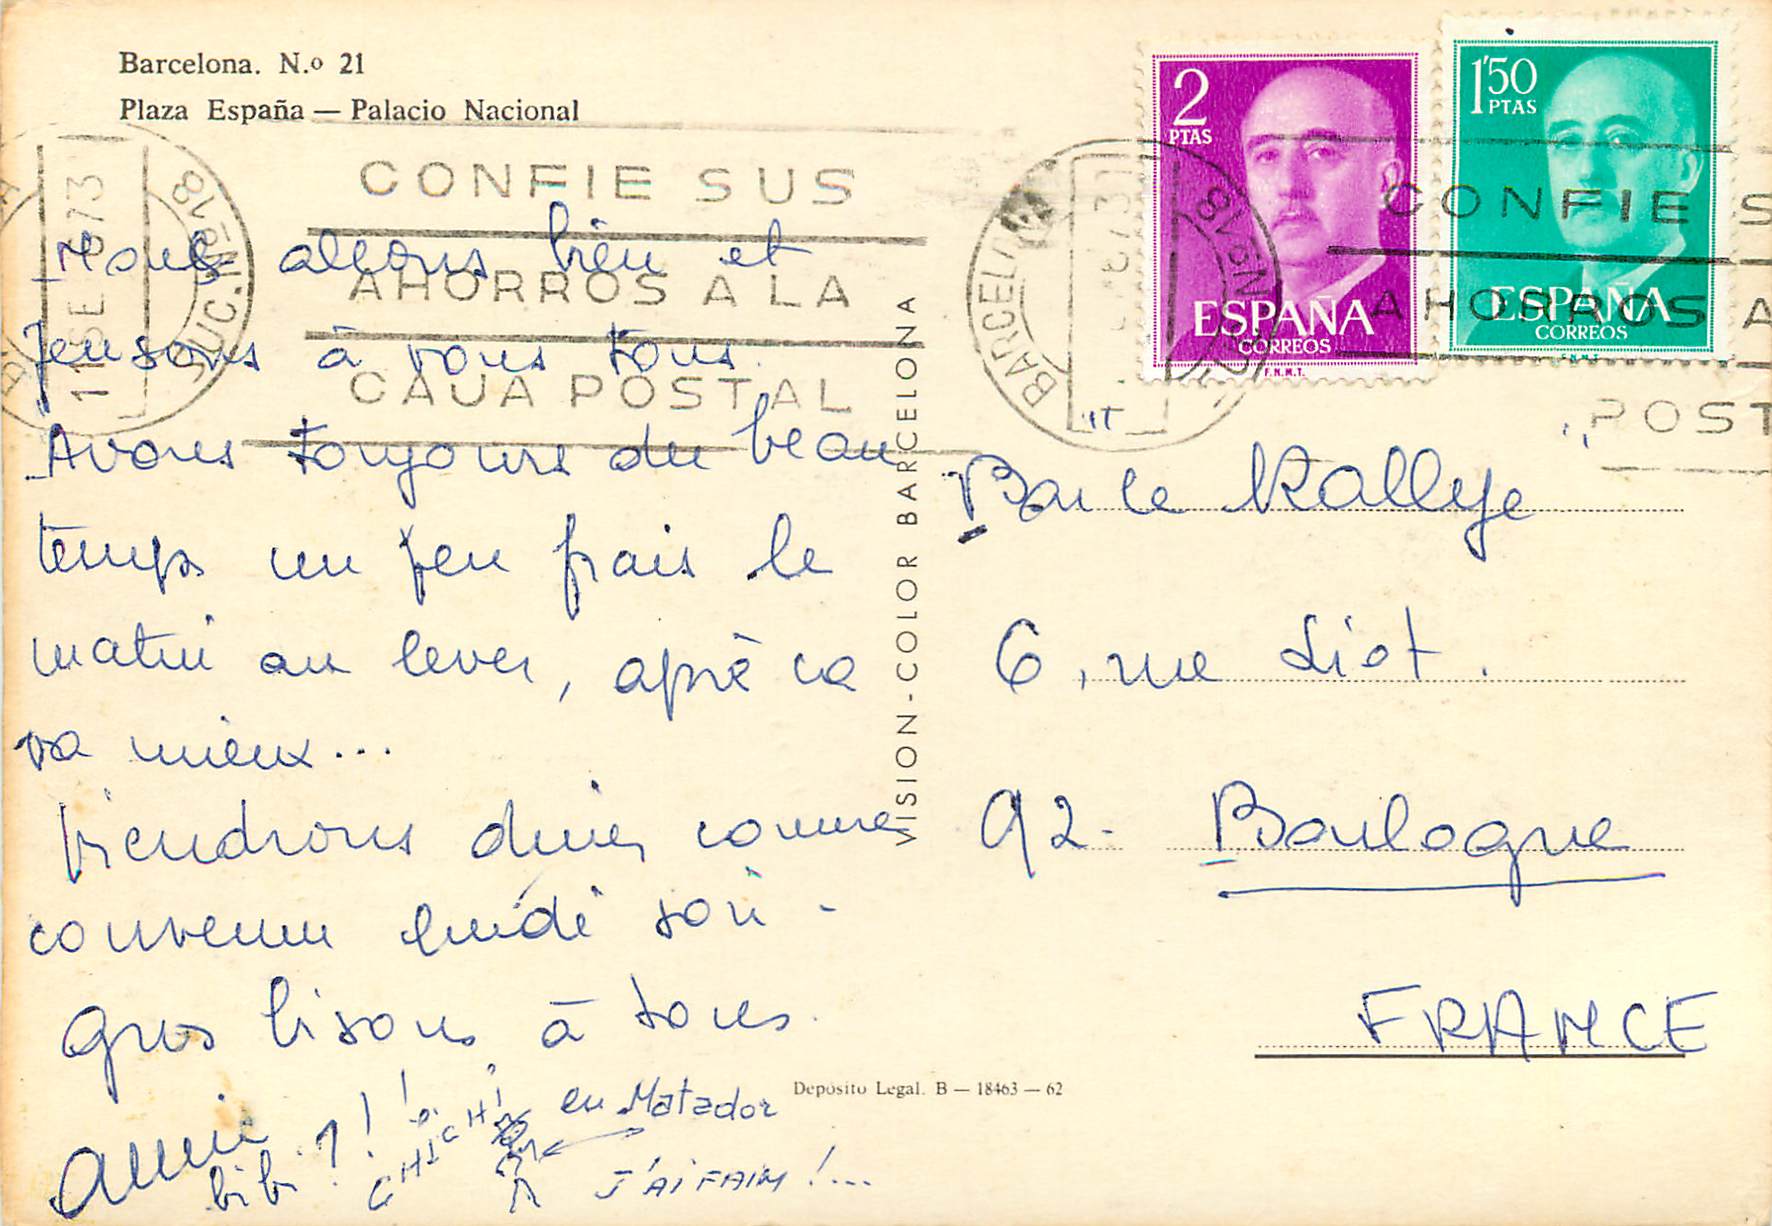 Barcelona. N.o 21
Plaza España — Palacio Nacional
CONFIE SUS
AHORROS A LA
CAJA POSTAL
11 SE 73
SUC. Nº 18
Nous allons bien et
pensons à vous tous.
Avons toujours du beau
temps un peu frais le
matin au lever, après ça
va mieux...
Viendrons diner comme
convenu lundi soir -
Gros bisous à tous.
Annie
bibi 1!!
CHICHI
en Matador
J'AI FAIM !...
VISION-COLOR BARCELONA
Depósito Legal. B — 18463 — 62
2
PTAS
ESPAÑA
CORREOS
F.N.M.T.
1'50
PTAS
ESPAÑA
CORREOS
F.N.M.T.
BARCELONA
73
Nº 18
CONFIE S
AHORROS A
POST
"Bar le Rallye"
6, rue Liot.
92- Boulogne
FRANCE